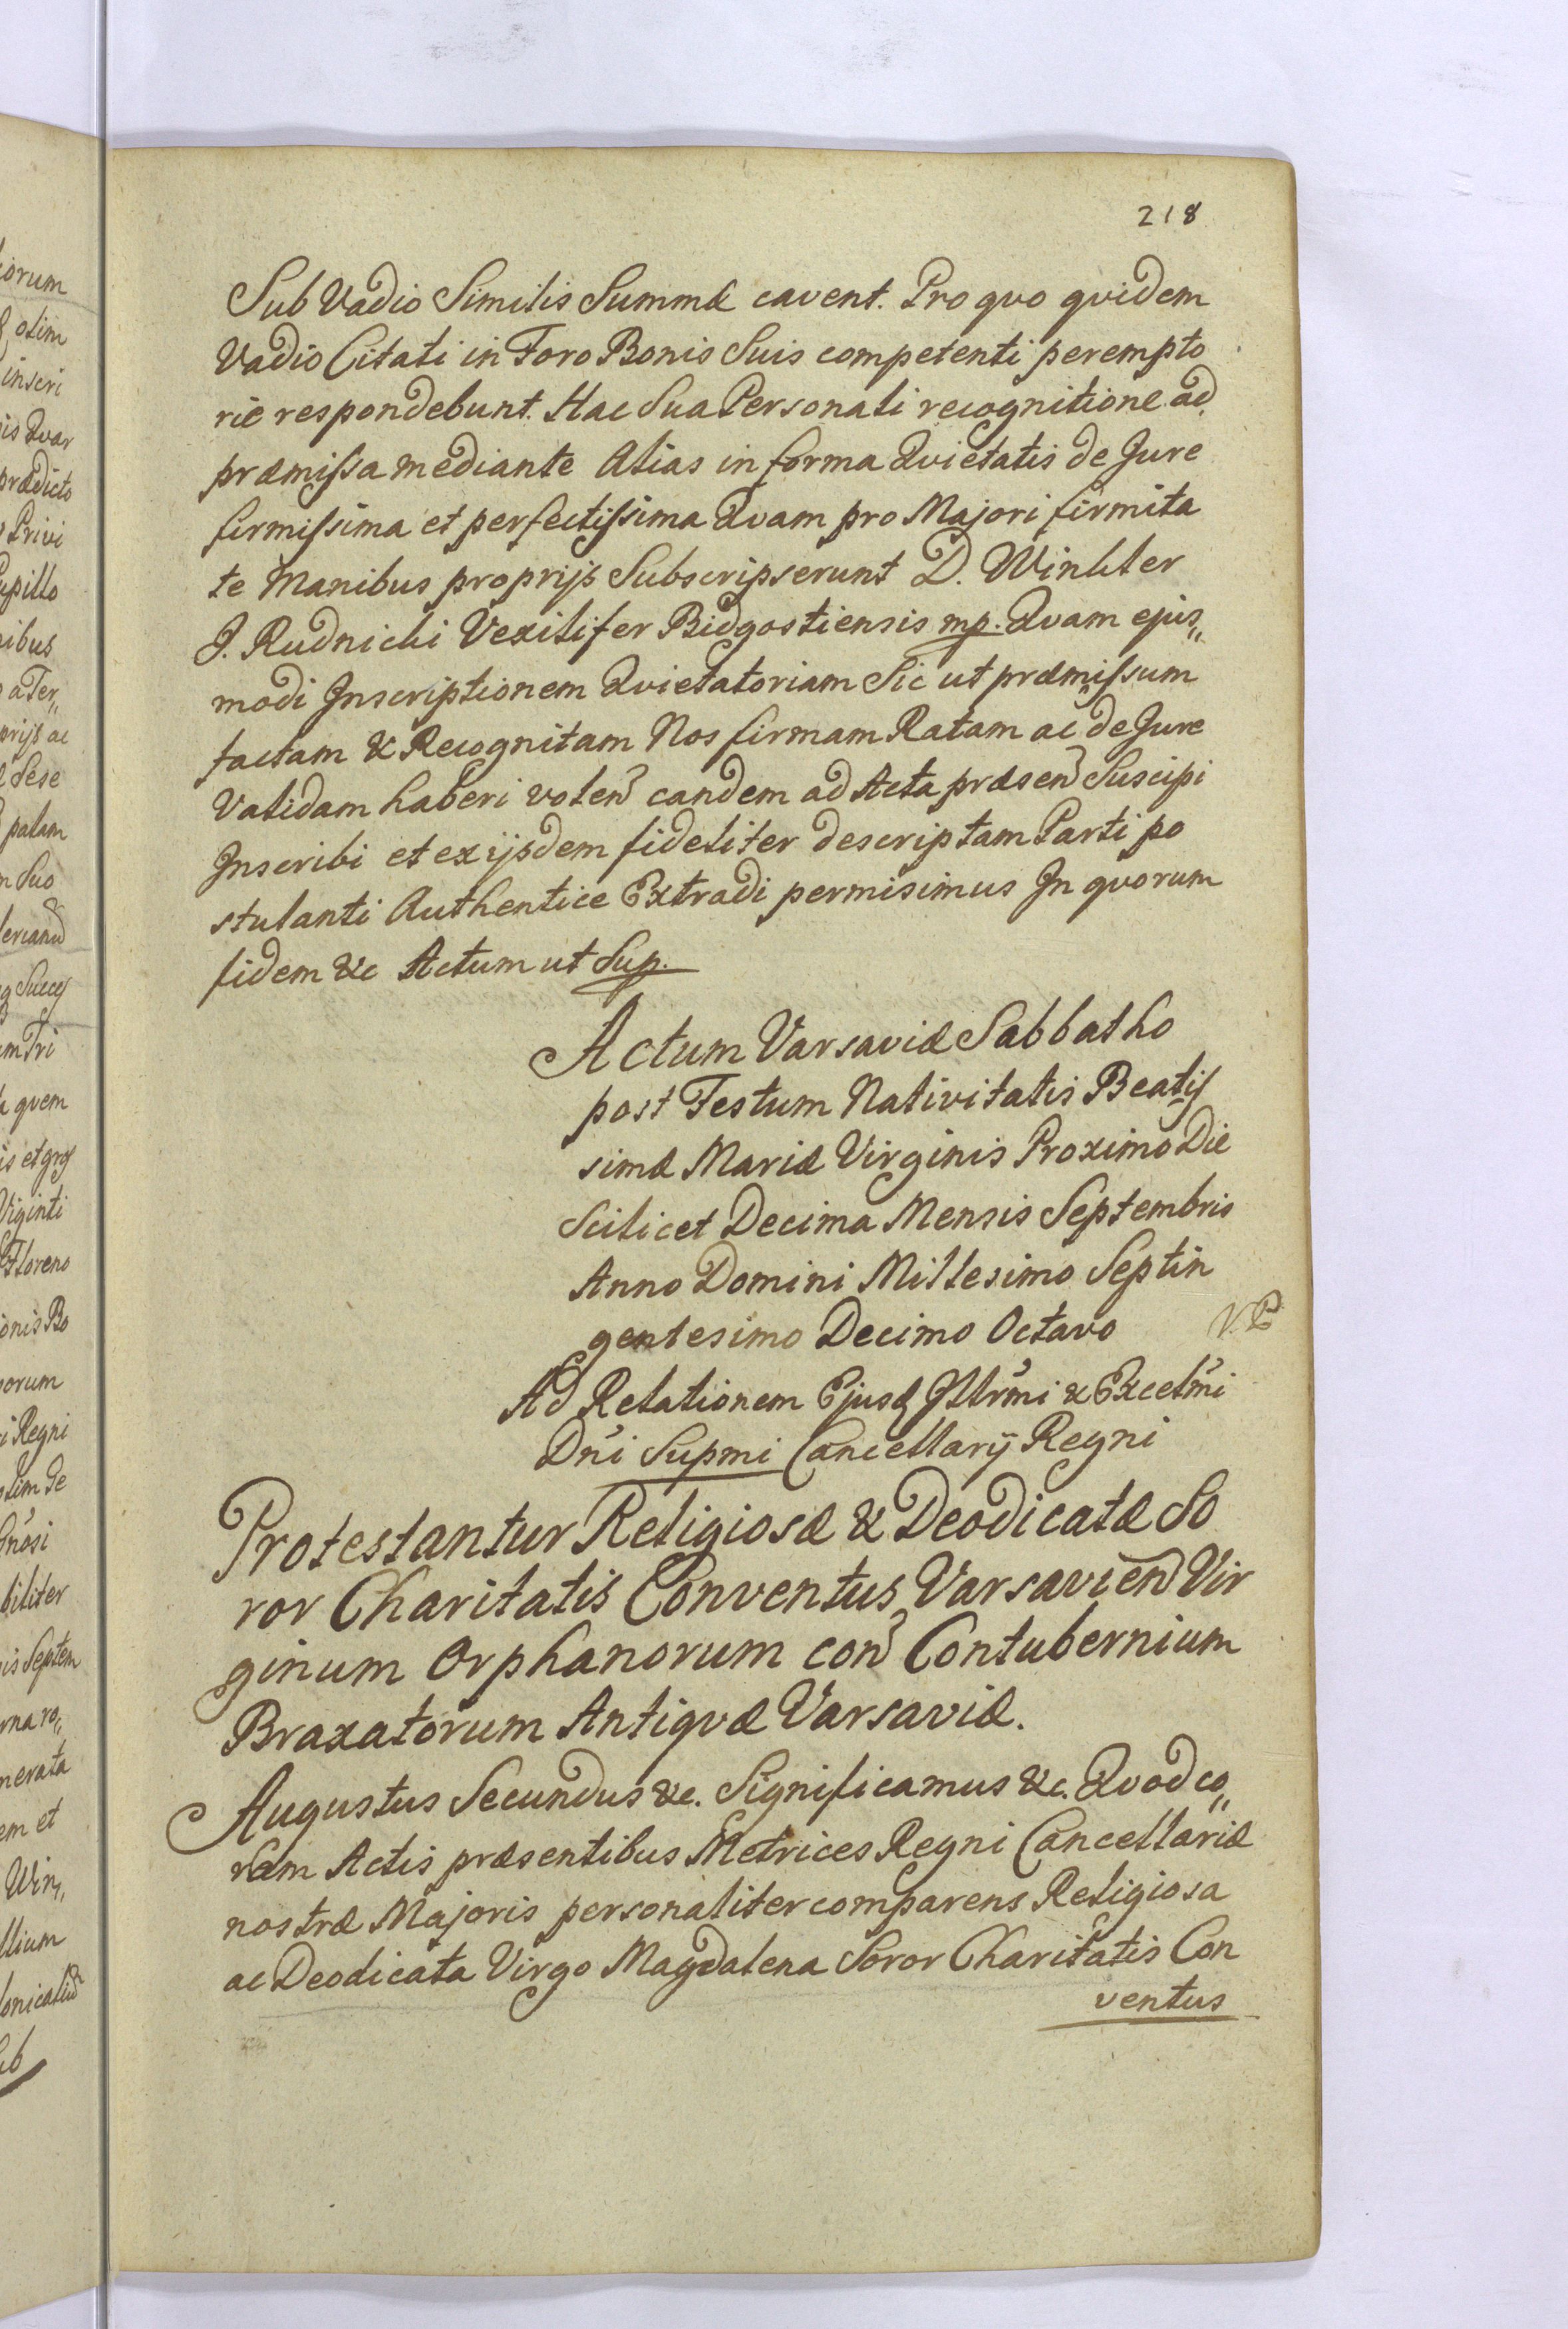 218
Sub Vadio Similis Summæ cavent. Pro qvo qvidem
Vadio Citati in Foro Bonis Suis competenti perempto
rie respondebunt. Hac Sua Personali recognitione ad
præmissa mediante Alias in forma Qvietatis de Jure
firmissima et perfectissima Qvam pro Majori firmita
te Manibus proprijs Subscripserunt D. Winkler
J. Rudnicki Vexilifer Bidgostiensis mp. Qvam ejus„
modi Inscriptionem Qvietatoriam Sic ut præmissum
factam & Recognitam Nos firmam Ratam ac de Jure
Validam haberi volen̄ eandem ad Acta præsen̄ Suscipi
Inscribi et ex ijsdem fideliter descriptam Parti po
stulanti Authentice Extradi permisimus In qvorum
fidem &c Actum ut Sup.
Actum Varsaviæ Sabbatho
post Festum Nativitatis Beatis
simæ Mariæ Virginis Proximo Die
Scilicet Decima Mensis Septembris
Anno Domini Millesimo Septin
gentesimo Decimo Octavo
V. P
Ad Relationem Ejusq Illr̄mi & Excel̄mi
Dn̄i Supmi Cancellarij Regni
Protestantur Religiosæ & Deodicatæ So
ror Charitatis Conventus Varsavien̄ Vir
ginum Orphanorum con̄ Contubernium
Braxatorum Antiqvæ Varsaviæ.
Augustus Secundus &c. Significamus &c. Qvod co„
ram Actis præsentibus Metrices Regni Cancellariæ
nostræ Majoris personaliter comparens Religiosa
ac Deodicata Virgo Magdalena Soror Charitatis Con
ventus